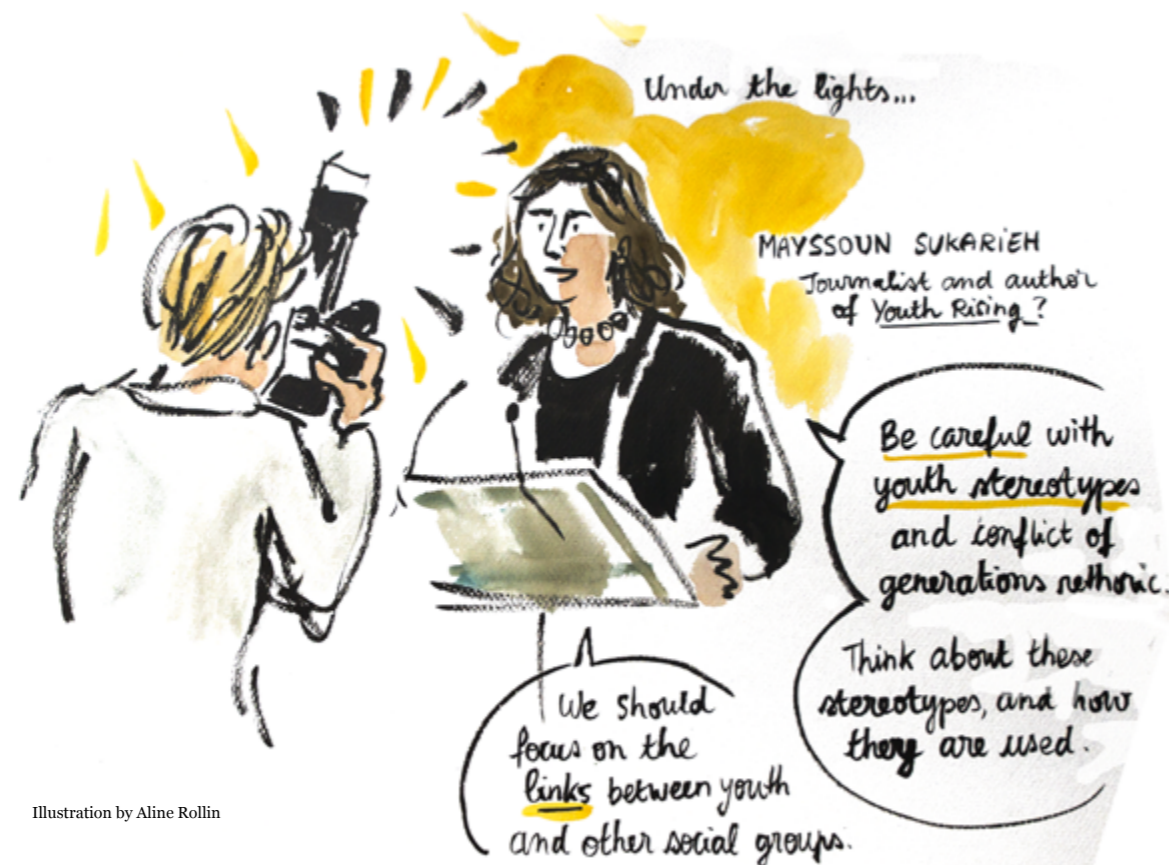 Under the lights...
MAYSSOUN SUKARIEH
Journalist and author
of Youth Rising?
Be careful with
youth stereotypes
and conflict of
generations rethoric.
Think about these
stereotypes, and how
they are used.
We should
focus on the
links between youth
and other social groups.
Illustration by Aline Rollin